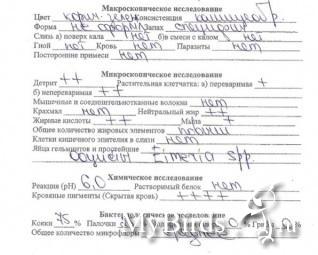 Макроскопическое исследование
Цвет корич-зелен Консистенция кашицеобр.
Форма не оформл Запах специфич
Слизь а) поверх кала нет б) в смеси с калом нет
Гной нет Кровь нет Паразиты нет
Посторонние примеси нет
Микроскопическое исследование
Детрит ++ Растительная клетчатка: а) переваримая +
б) непереваримая ++
Мышечные и соединительнотканные волокна нет
Крахмал нет Нейтральный жир ++
Жирные кислоты ++ Мыла +
Общее количество жировых элементов
Клетки кишечного эпителия в слизи нет
Яйца гельминтов и простейшие
Ооцисты Eimeria spp.
Химическое исследование
Реакция (pH) 6,0 Растворимый белок нет
Кровяные пигменты (Скрытая кровь) ++++
Бактериологическое исследование
Кокки 75 % Палочки
Общее количество микрофлоры
MyBirds